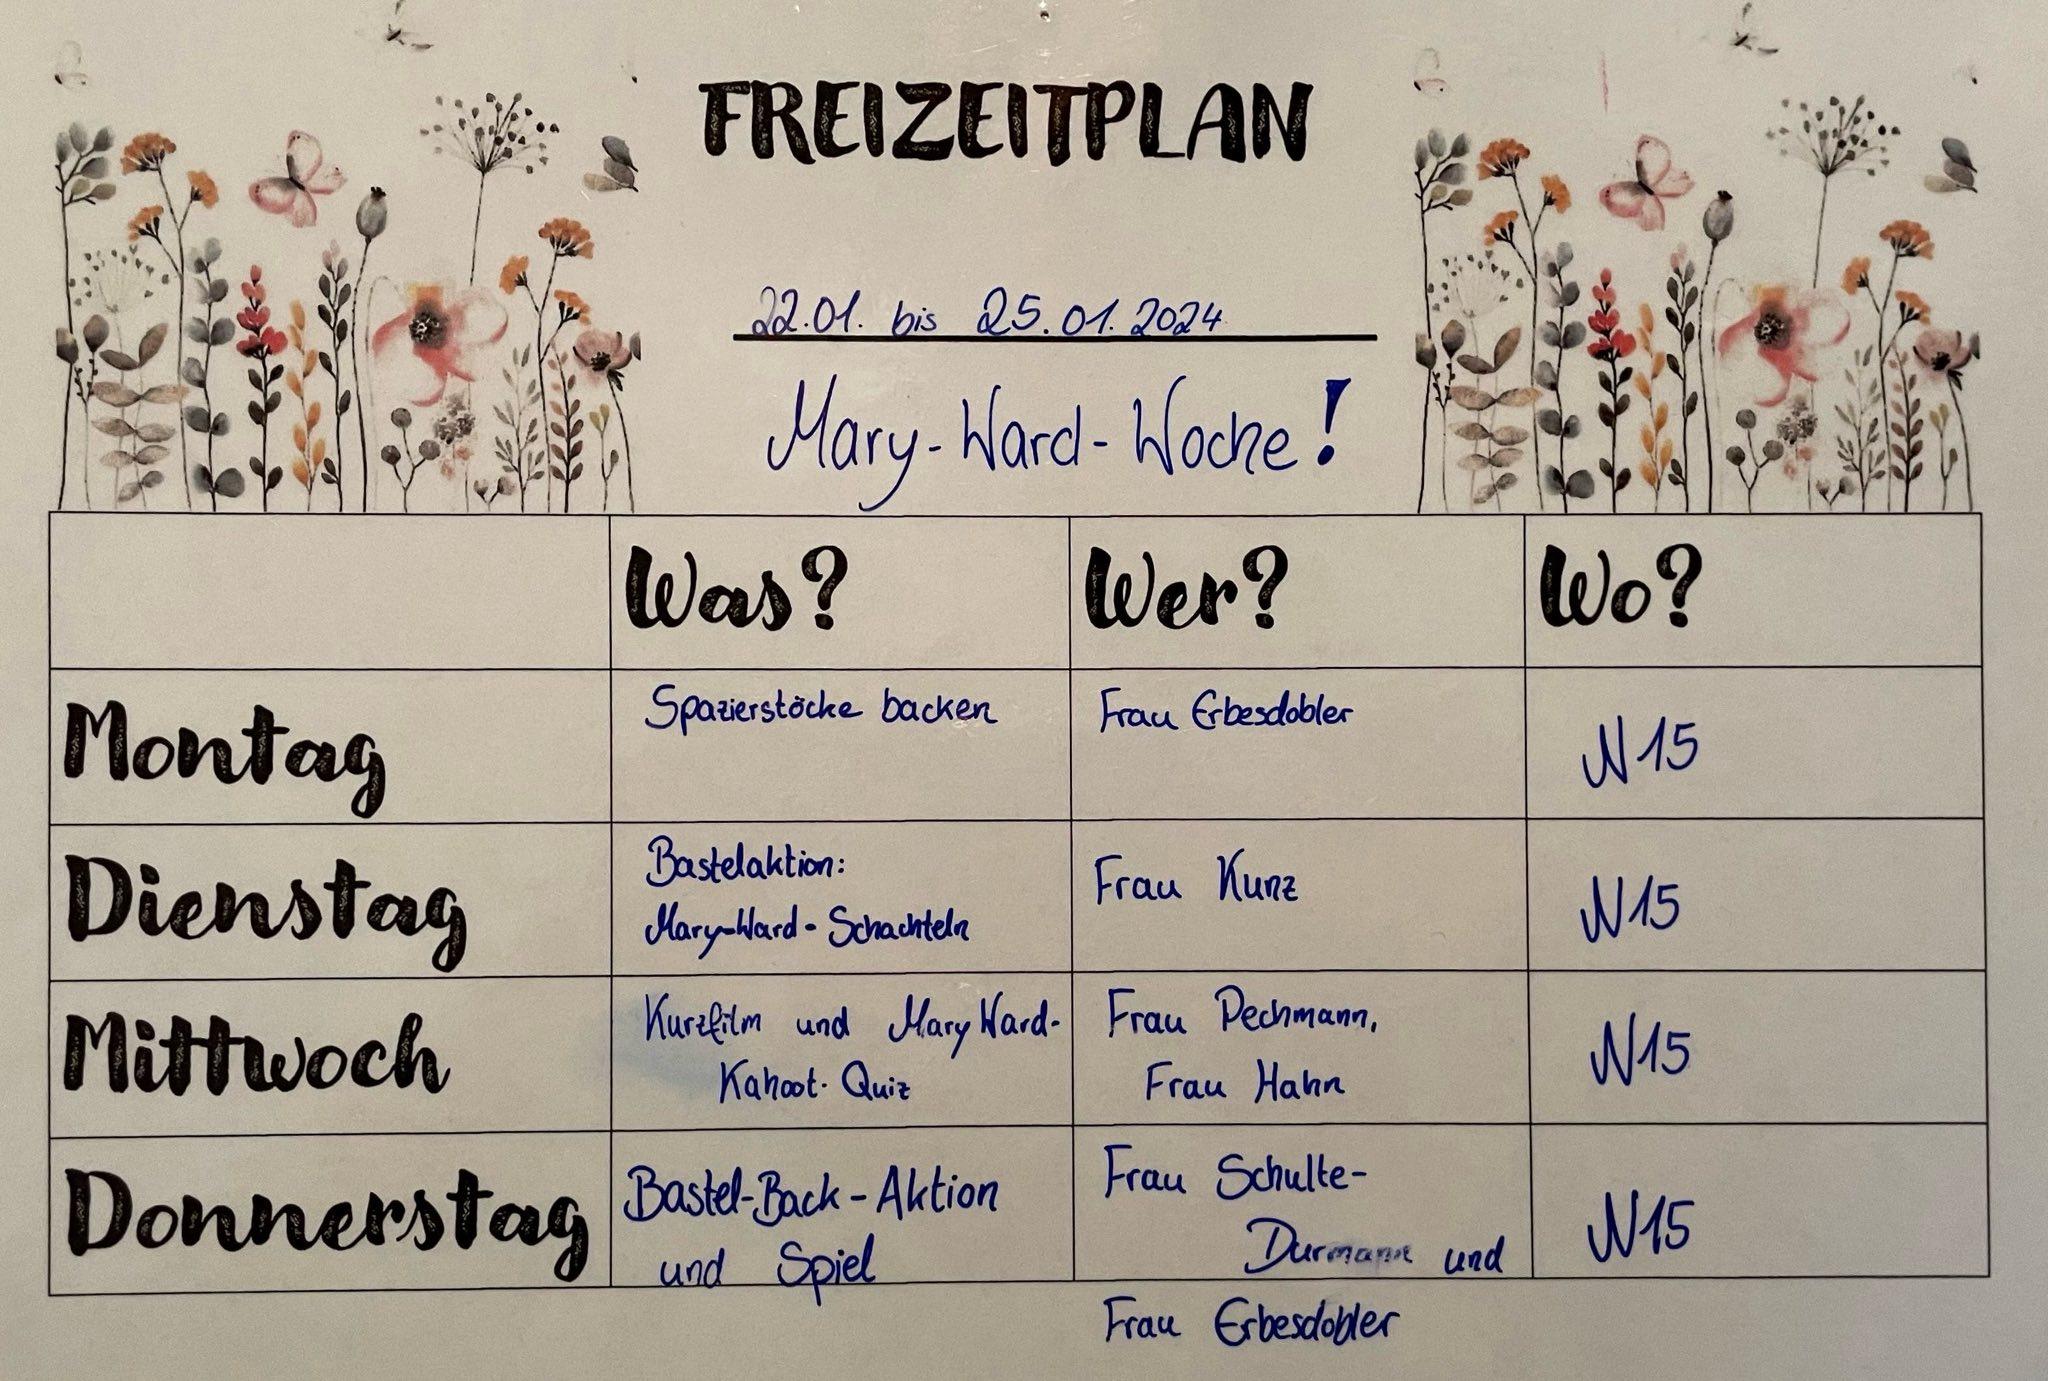 FREIZEITPLAN
22.01. bis 25.01.2024
Mary-Ward-Woche!
Was? Wer? Wo?
Montag
Spazierstöcke backen
Frau Erbesdobler
N15
Dienstag
Bastelaktion:
Mary-Ward-Schachteln
Frau Kunz
N15
Mittwoch
Kurzfilm und Mary Ward-
Kahoot-Quiz
Frau Pechmann,
Frau Hahn
N15
Donnerstag
Bastel-Back-Aktion
und Spiel
Frau Schulte-
Durmann und
Frau Erbesdobler
N15